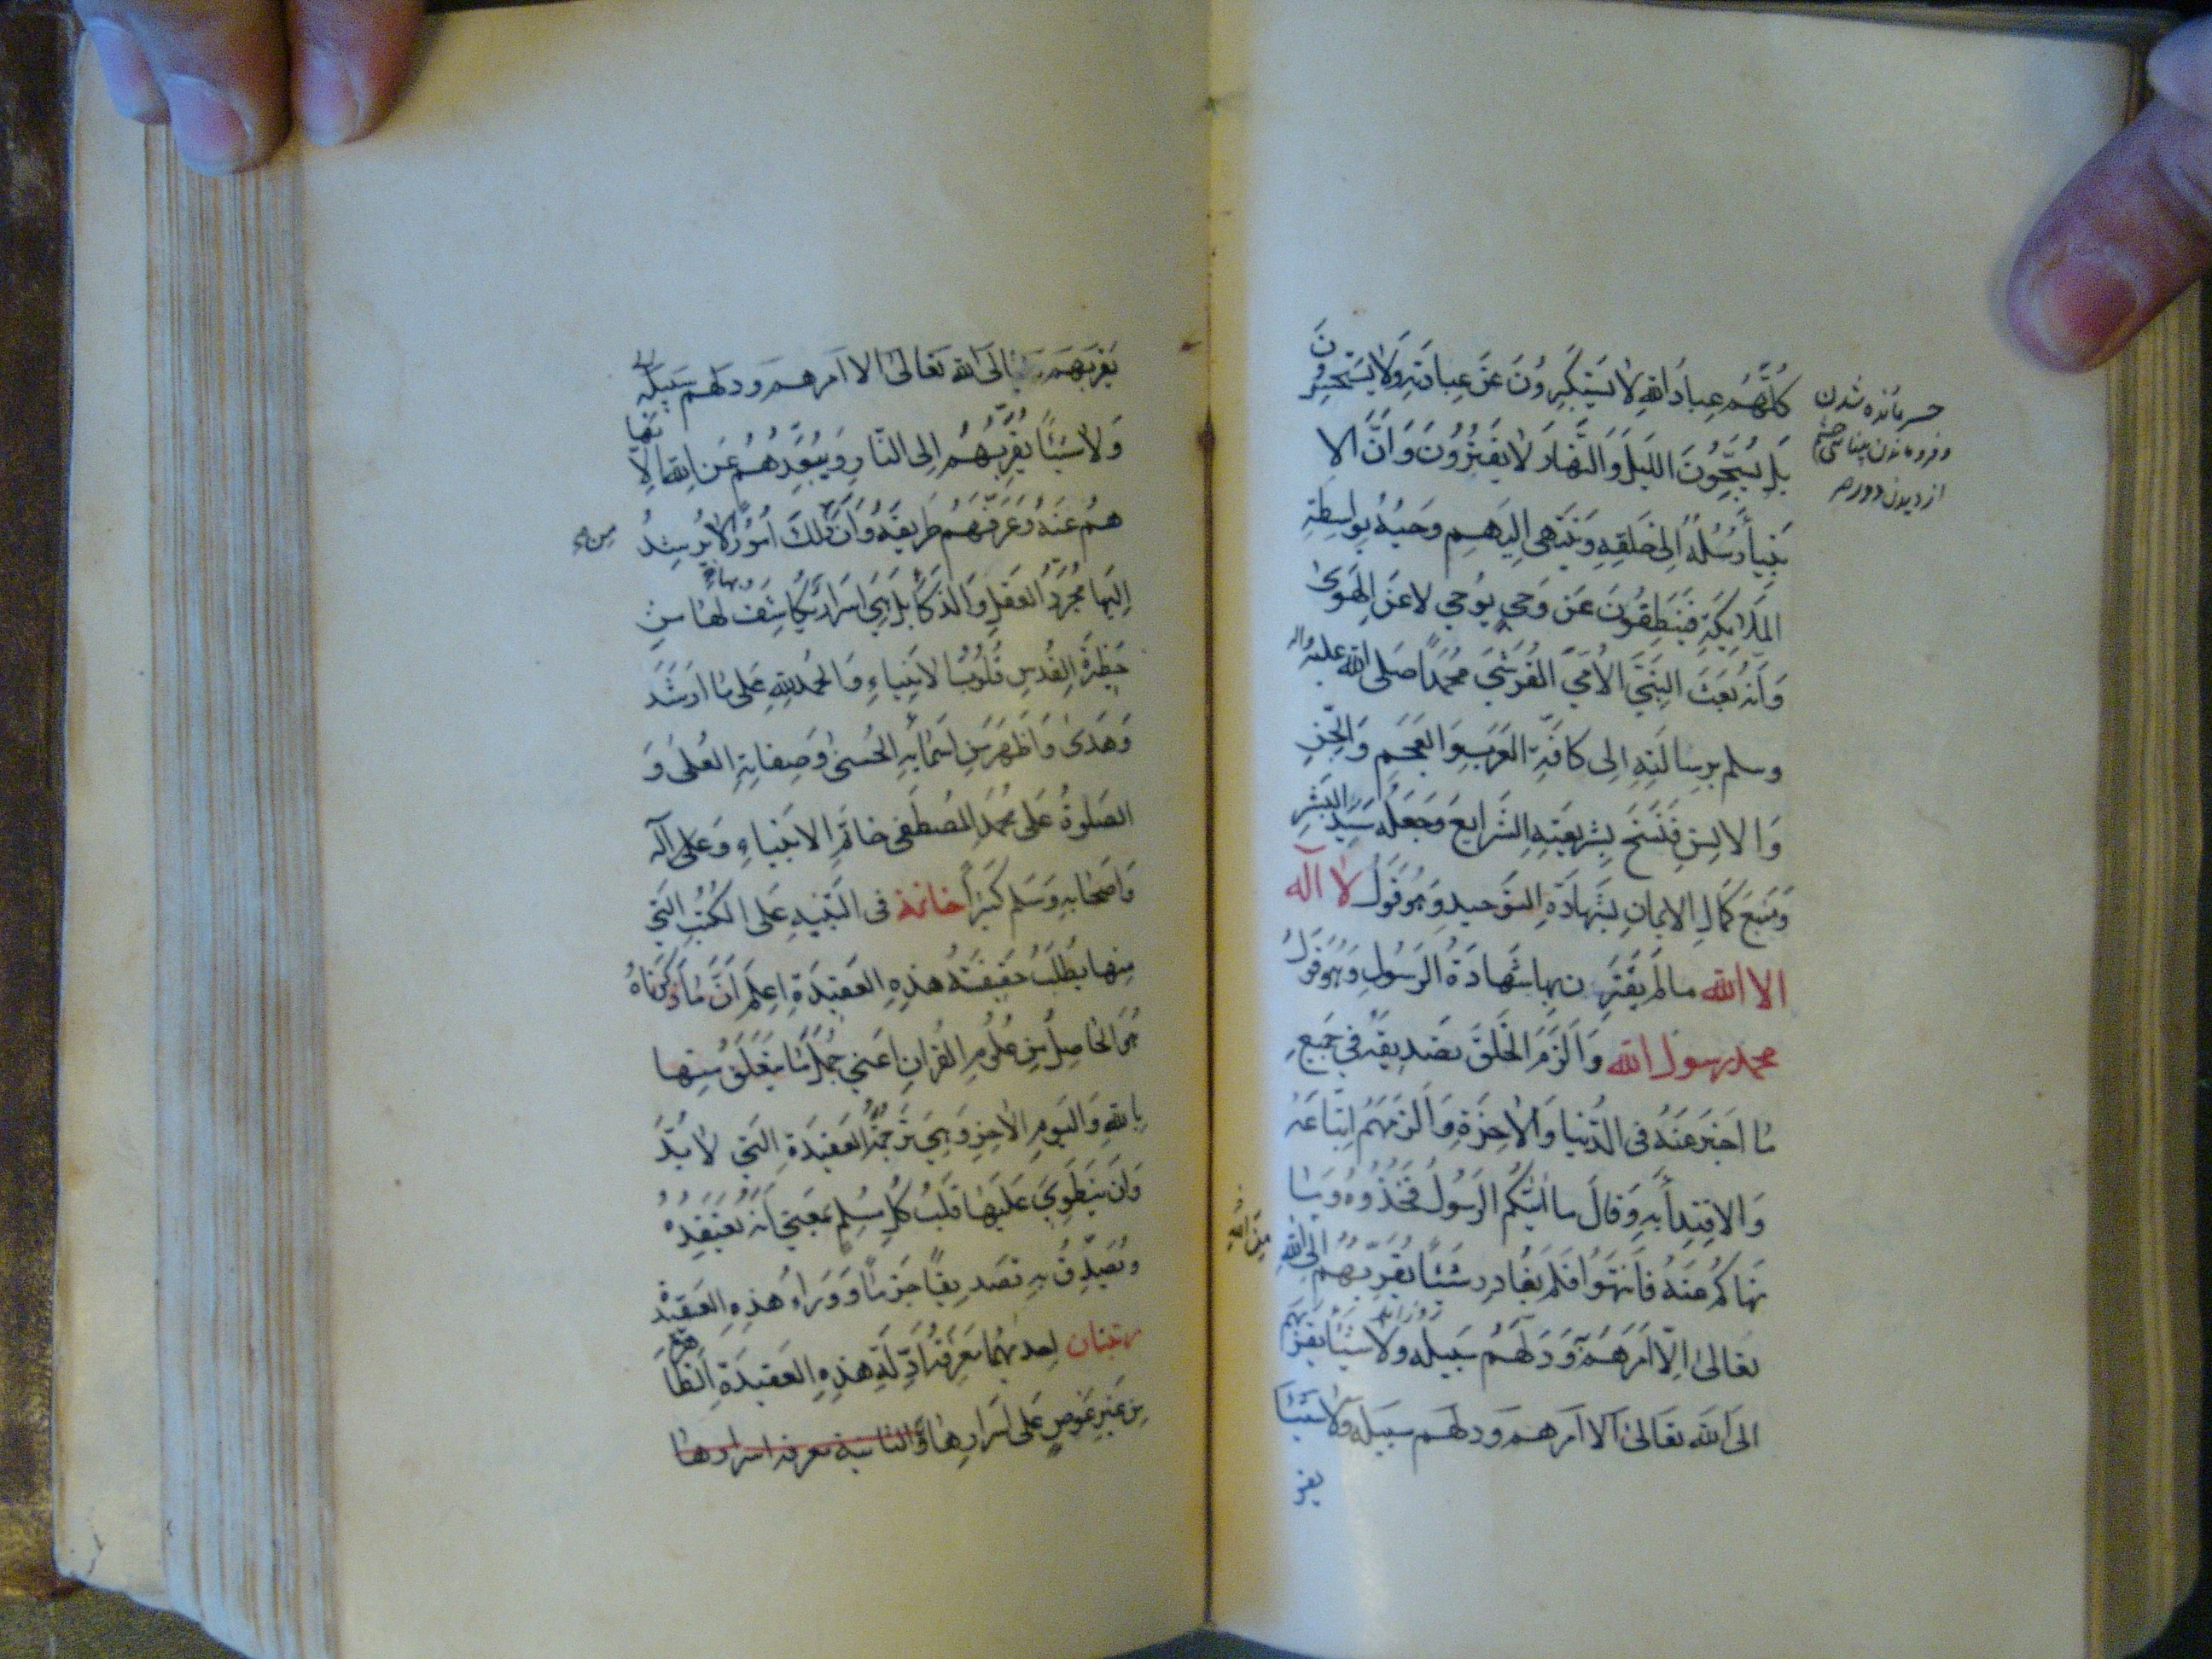 كُلُّهُم عِبادُ اللهِ لا يَستَكبِرُونَ عَن عِبادَتِهِ وَلا يَستَحسِرُونَ
بَل يُسَبِّحُونَ اللَيلَ وَالنَّهارَ لا يَفتُرُونَ وَاَنَّ الا
نبِياءَ رُسُلُهُ اِلى خَلقِهِ وَيَنتَهي اِلَيهِم وَحيُهُ بِواسِطَةِ
المَلائِكَةِ فَيَنطِقُونَ عَن وَحيٍ يُوحي لا عَنِ الهَوى
وَاَنَّهُ بَعَثَ النَّبِيَّ الاُمِّيَّ القُرَشِيَّ مُحَمَّداً صَلى الله عليه واله
وسلم بِرِسالَتِهِ اِلى كافَّةِ العَرَبِ وَالعَجَمِ وَالجِنِّ
وَالانسِ فَنَسَخَ بِشَرِيعَتِهِ الشَّرايِعَ وَجَعَلَهُ سَيِّدَ البَشَرِ
وَمَنَعَ كَمالَ الايمانِ بِشَهادَةِ التَوحيدِ وَهُوَ قَولُ لا اله
الا الله مالَم يَقتَرِن بِها شَهادَةُ الرَسُولِ وَهُوَ قَولُ
محمد رسول الله وَاَلزَمَ الخَلقَ تَصديقَهُ في جَميعِ
ما اَخبَرَ عَنهُ فى الدُّنيا وَالاخِرَةِ وَاَلزَمَهُم اِتِّباعَهُ
وَالاِقتِداءَ بِهِ وَقالَ ما اتيكُم الرَسُولُ فَخُذُوهُ وَما
نَهاكُم عَنهُ فَانتَهُوا فَلَم يُغادِر شَيئاً يُقَرِّبُهُم اِلَى اللهِ
تعالى اِلّا اَمَرَهُم وَدَلَّهُم سَبيلَهُ ولا شَيئاً يُقَرِّبُهُم
الى الله تعالى الا امرهم ودلهم سبيله ولا شيئا
يقر
حسر مانده شدن
و فرو ماندن بينائى چشم
از ديدن دور
مِنَ اللهِ
يقربهم الى الله تعالى الا امرهم ودلهم سبيله
وَلا شَيئاً يُقَرِّبُهُم اِلى النّارِ وَيُبَعِّدُهُم عَنِ اللهِ تعالى اِلا
هُم عَنهُ وَعَرَّفَهُم طَريقَهُ وَاَنَّ ذلِكَ اُمُورٌ لا يُرشِدُ
اِلَيها مُجَرَّدُ العَقلِ وَالذَّكاءِ بَل هِيَ اَسرارٌ يُكاشِفُ بها مِن
حَظيرَةِ القُدسِ قُلُوبُ الانبِياءِ وَالحَمدُ للهِ عَلى ما اَرشَدَ
وَهَدى وَاَظهَرَ مِن اَسمائِهِ الحُسنى وَصِفاتِهِ العُلى وَ
الصَلوةُ عَلى مُحَمَّدٍ المُصطَفى خاتَمِ الانبِياءِ وَعَلى آلِه
وَاَصحابِهِ وَسَلَّم كَثيراً خاتمة فى التَّنبيهِ عَلى الكُتُبِ الَّتي
مِنها يُطلَبُ حَقيقَةُ هذِهِ العَقيدَةِ اِعلَم اَنَّ ما ذَكَرناهُ
هُوَ الحاصِلُ مِن عُلُومِ القُرانِ اَعني جُمَلَ ما يَتَعَلَّقُ مِنها
بِاللهِ وَاليَومِ الاخِرِ وَهِيَ تَرجَمَةُ العَقيدَةِ الَّتي لا بُدَّ
وَاَن يَنطَوِيَ عَلَيها قَلبُ كُلِّ مُسلِمٍ بِمَعنى اَنَّهُ يَعتَقِدُهُ
وَيُصَدِّقُ بِهِ تَصديقاً جَزماً وَوَراءَ هذِهِ العَقيدَةِ
رتبتان احديهما مَعرِفَةُ اَدِلَّةِ هذِهِ العَقيدَةِ الظاهرة
مِن غَيرِ غَوصٍ عَلى اَسرارِها وَالثانية معرفة اسرارها